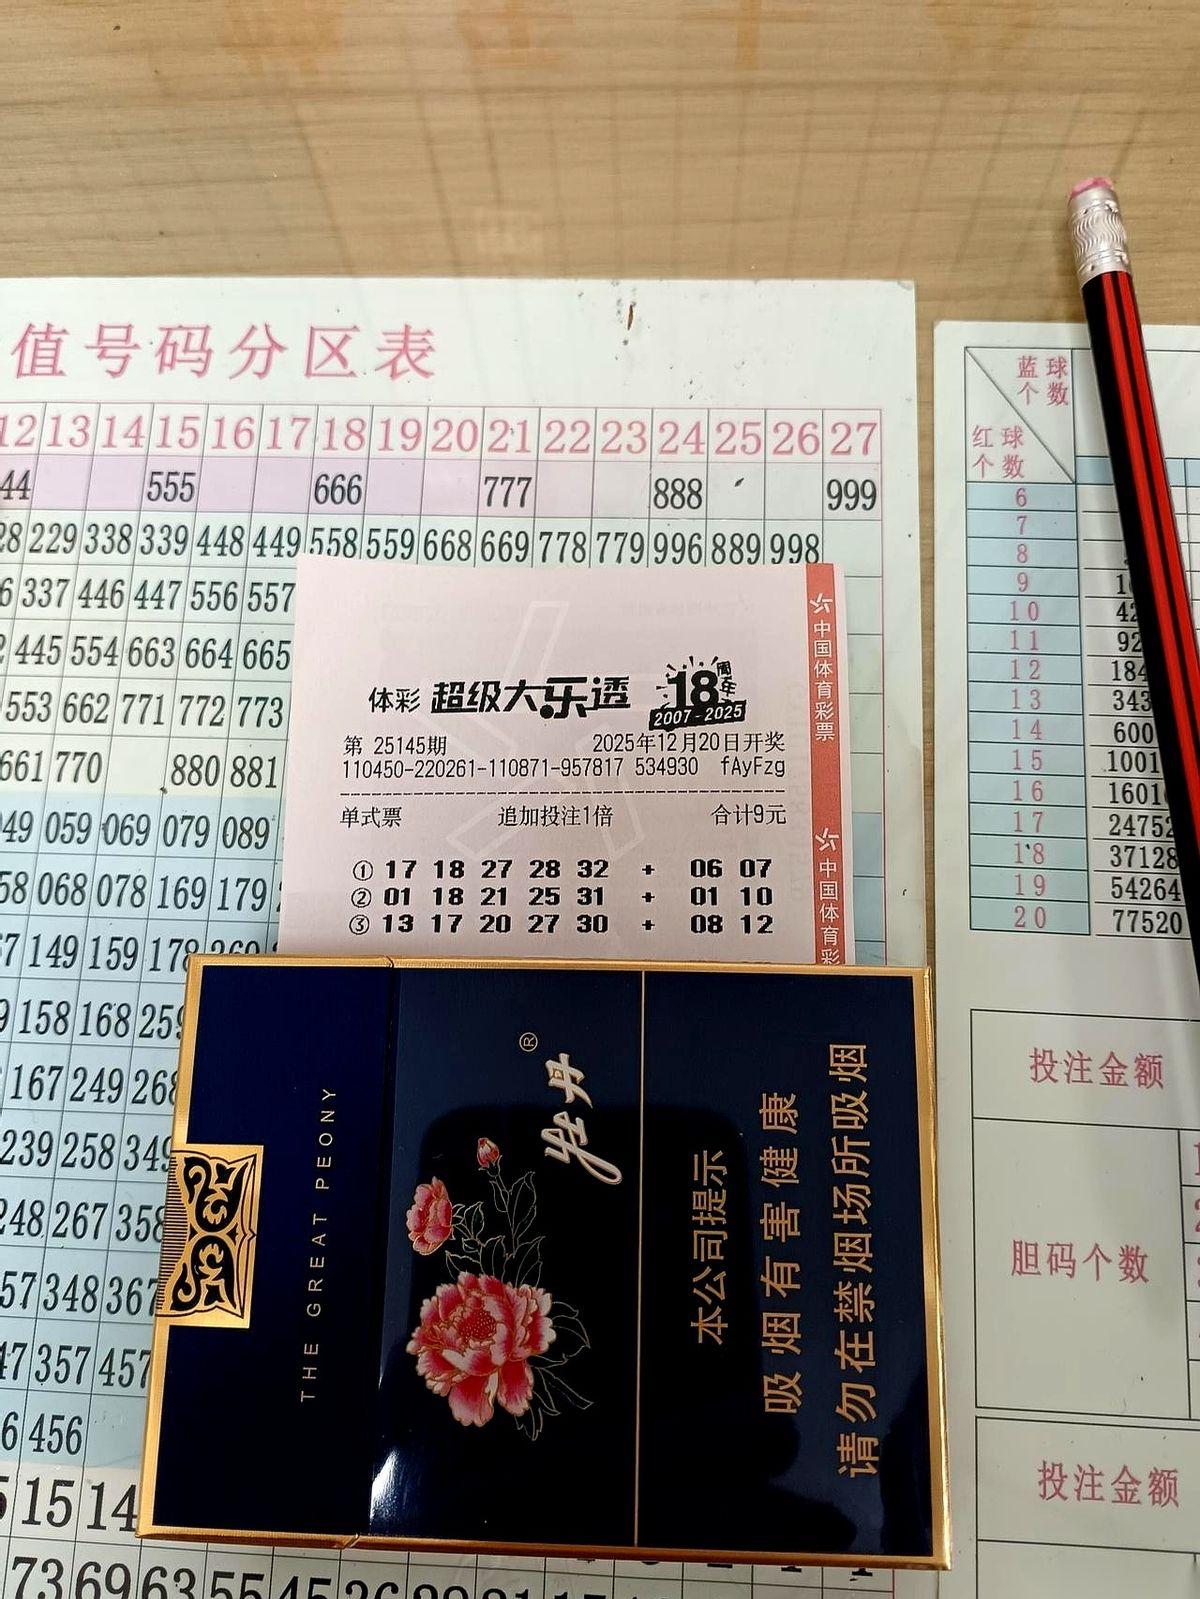 值号码分区表
12 13 14 15 16 17 18 19 20 21 22 23 24 25 26 27
44 555 666 777 888 999
28 229 338 339 448 449 558 559 668 669 778 779 996 889 998
6 337 446 447 556 557
2 445 554 663 664 665
553 662 771 772 773
661 770 880 881
049 059 069 079 089
58 068 078 169 179
57 149 159 178
9 158 168 259
167 249 268
239 258 349
248 267 358
57 348 367
47 357 457
6 456
5 15 14
73 69 63 55 45 36
中国体育彩票
中国体育彩
体彩 超级大乐透 18周年
2007-2025
第 25145期 2025年12月20日开奖
110450-220261-110871-957817 534930 fAyFzg
单式票 追加投注1倍 合计9元
① 17 18 27 28 32 + 06 07
② 01 18 21 25 31 + 01 10
③ 13 17 20 27 30 + 08 12
THE GREAT PEONY
牡丹®
本公司提示
吸烟有害健康
请勿在禁烟场所吸烟
蓝球个数
红球个数
6
7
8
9
10
11
12 184
13 343
14 600
15 1001
16 1601
17 24752
18 37128
19 54264
20 77520
投注金额
胆码个数
投注金额